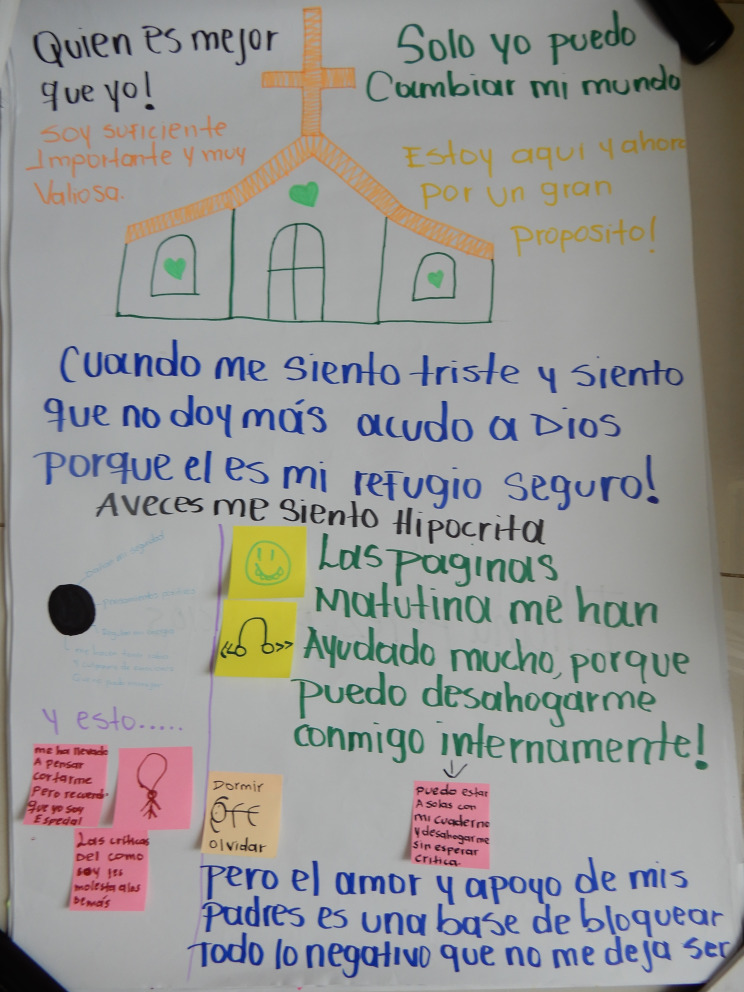 Quien es mejor
que yo!
Solo yo puedo
Cambiar mi mundo
Soy suficiente
Importante y muy
Valiosa.
Estoy aqui y ahora
por un gran
proposito!
Cuando me siento triste y siento
que no doy más acudo a Dios
porque el es mi refugio seguro!
Aveces me siento Hipocrita
Las paginas
Matutina me han
Ayudado mucho, porque
puedo desahogarme
conmigo internamente!
Y esto.....
me ha llevado
A pensar
cortarme
Pero recuerdo
que yo soy
Especial
Las críticas
Del como
soy les
molesta a los
Demás
Dormir
olvidar
puedo estar
A solas con
mi cuaderno
y desahogarme
sin esperar
critica.
pero el amor y apoyo de mis
padres es una base de bloquear
Todo lo negativo que no me deja ser